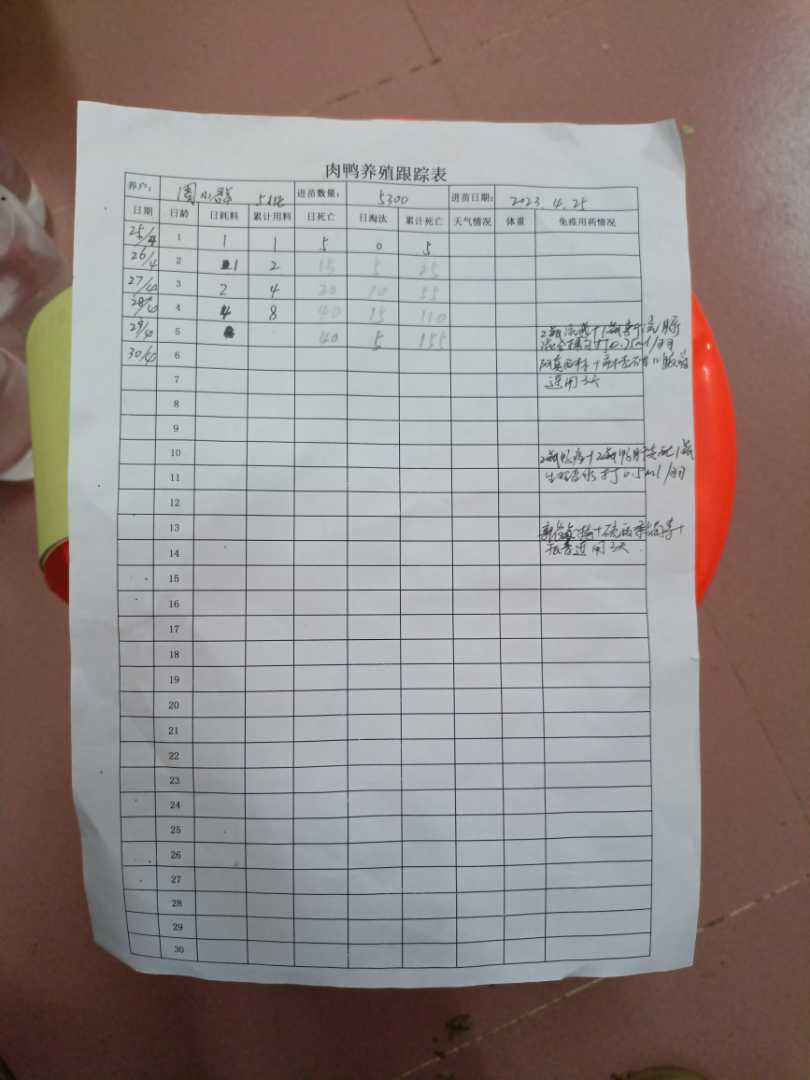 肉鸭养殖跟踪表
养户： 周小群 5批 进苗数量： 5300 进苗日期： 2023.4.25
日期 日龄 日耗料 累计用料 日死亡 日淘汰 累计死亡 天气情况 体重 免疫用药情况
25/4 1 1 1 5 0 5
26/4 2 1 2 15 5 25
27/4 3 2 4 20 10 55
28/4 4 4 8 40 15 110
29/4 5 40 5 155
30/4 6
打0.25ml/羽
7 连用3天
8
9
10
11 打0.5ml/羽
12
13
14 连用3天
15
16
17
18
19
20
21
22
23
24
25
26
27
28
29
30